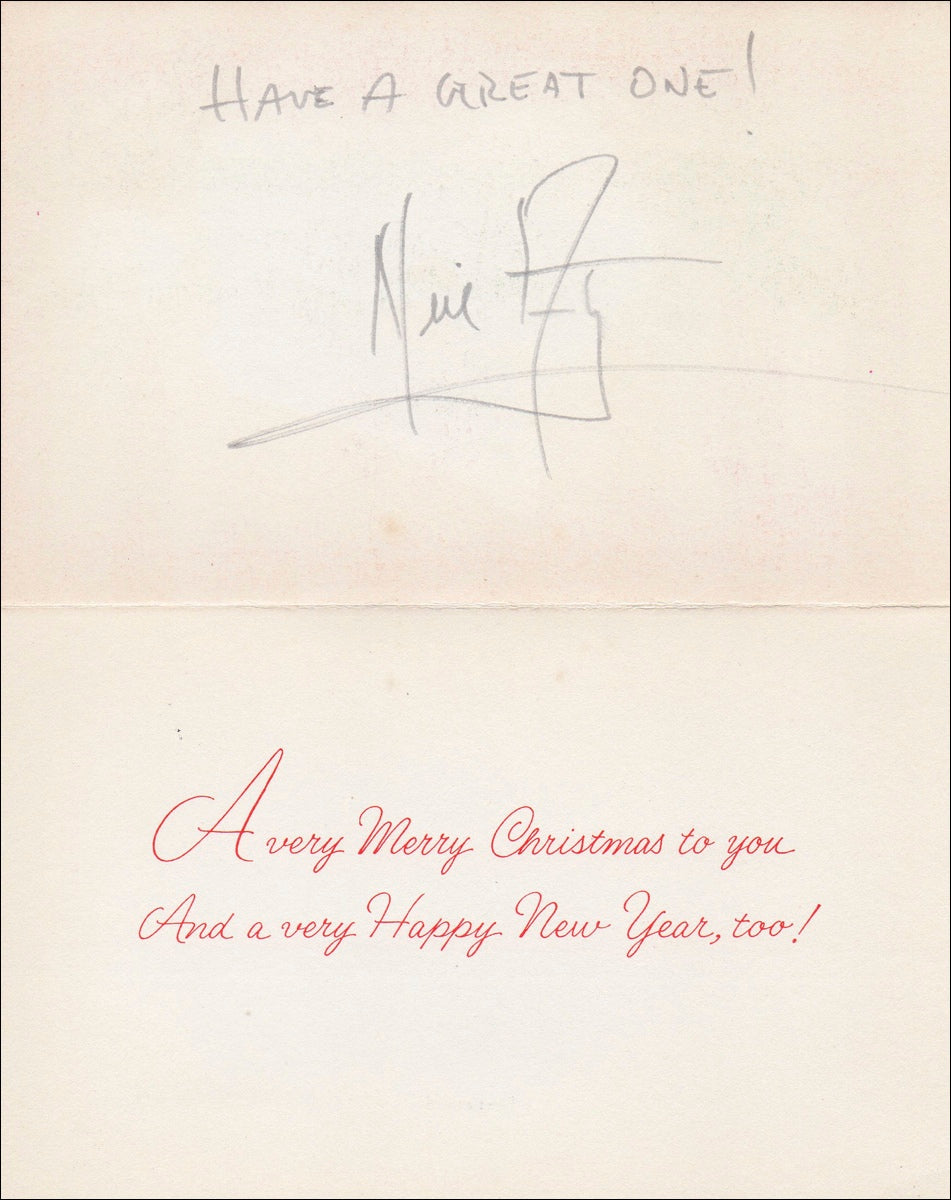 HAVE A GREAT ONE!
Neil
A very Merry Christmas to you
And a very Happy New Year, too!